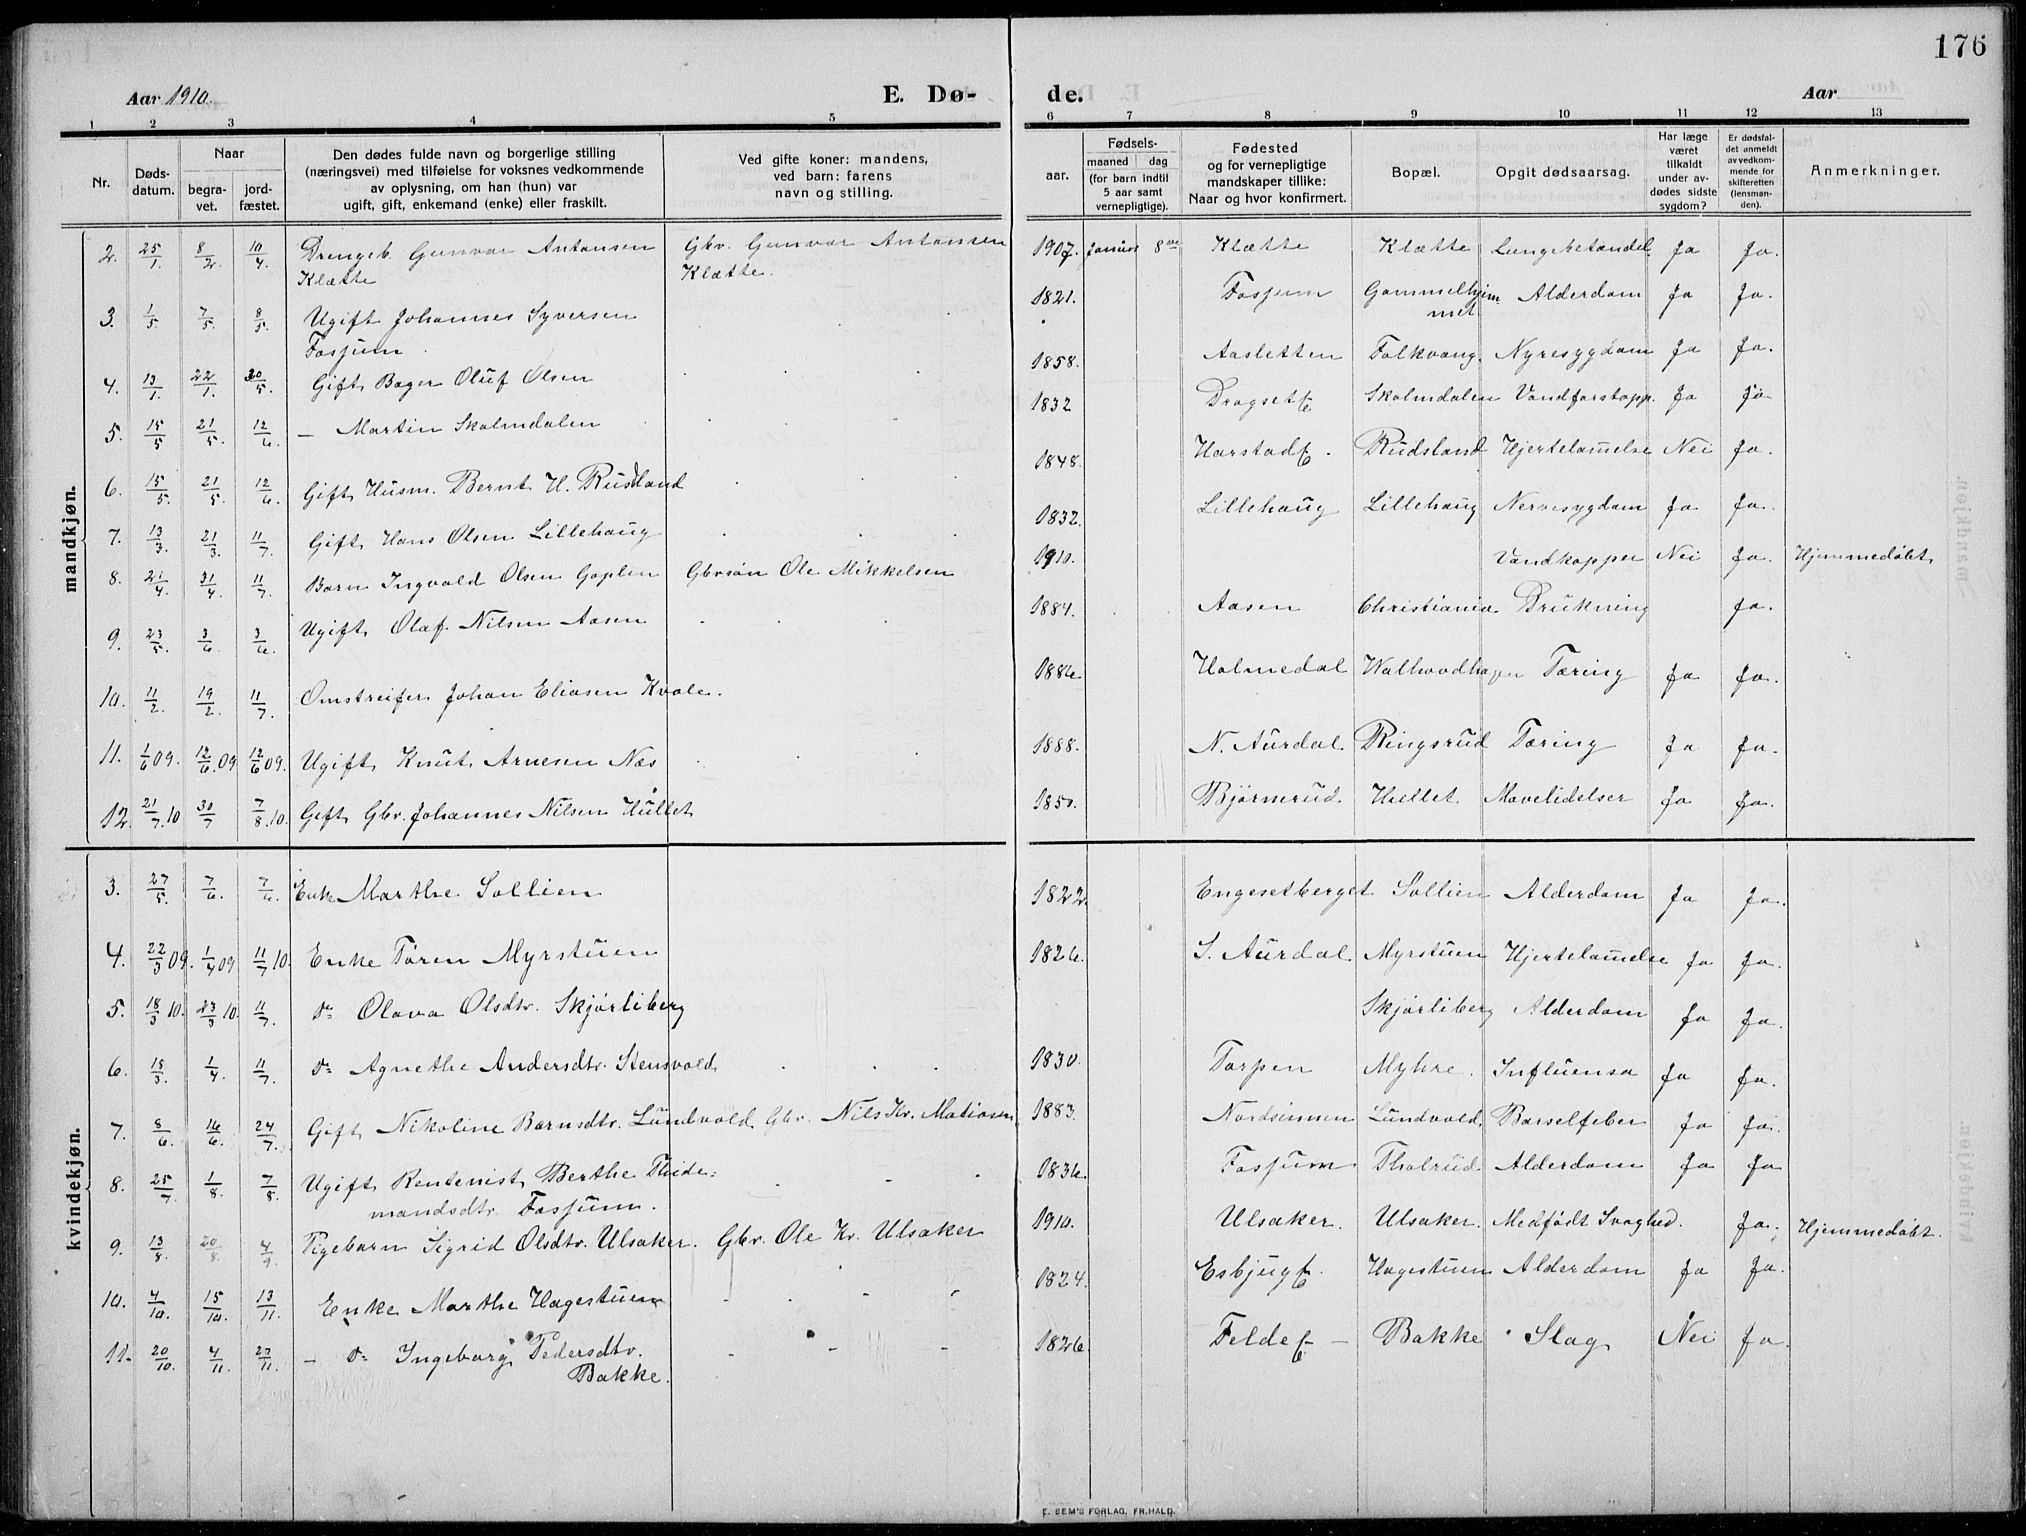 176
Aar 1910.
E. Dø-
de.
Aar
1 2 3 4 5 6 7 8 9 10 11 12 13
Nr.
Døds-
datum.
Naar
begra-
vet.
jord-
fæstet.
Den dødes fulde navn og borgerlige stilling
(næringsvei) med tilføielse for voksnes vedkommende
av oplysning, om han (hun) var
ugift, gift, enkemand (enke) eller fraskilt.
Ved gifte koner: mandens,
ved barn: farens
navn og stilling.
Fødsels-
aar.
maaned dag
(for barn indtil
5 aar samt
vernepligtige).
Fødested
og for vernepligtige
mandskaper tillike:
Naar og hvor konfirmert.
Bopæl.
Opgit dødsaarsag.
Har læge
været
tilkaldt
under av-
dødes sidste
sygdom?
Er dødsfal-
det anmeldt
av vedkom-
mende for
skifteretten
(lensman-
den).
Anmerkninger.
mandkjøn.
2. 25/1. 8/2. 10/4. Drengeb. Gunvar Antonsen Gbr. Gunvor Antonsen 1907. Januar 8de Klætte Klætte Lungebetændel. Ja Ja.
Klætte Klætte.
3. 1/5 7/5. 8/5. Ugift Johannes Syversen 1821. Fosjum Gammelhjem Alderdom Ja Ja.
Fosjum. met
4. 13/1. 22/1. 30/5. Gift Bager Oluf Olsen 1858. Aasletten Folkvang. Nyresygdom Ja Ja.
5. 15/5 21/5. 12/6. — Martin Skolmdalen 1832 Dragset Skolmdalen Vandforstopp. Ja Ja
6. 15/5. 21/5. 12/6. Gift Husm. Bernt H. Rudsland 1848. Harstad Rudsland Hjertelammelse Nei Ja.
7. 13/3. 21/3. 11/7. Gift Hans Olsen Lillehaug 1832. Lillehaug Lillehaug Nervesygdom Ja Ja.
8. 21/4 31/4. 11/7. Barn Ingvald Olsen Goplen Gbrsøn Ole Mikkelsen 1910. Vandkopper Nei Ja. Hjemmedøbt
9. 23/5. 3/6 3/6. Ugift Olaf Nilsen Aasen 1884. Aasen Christiania. Drukning Ja.
10. 11/2. 19/2. 11/7. Omstreifer Johan Eliasen Kvale. 1886 Holmedal Tæring Ja Ja.
11. 1/6 09. 12/6 09 12/6 09. Ugift Knut Arnesen Næs 1888. N. Aurdal. Ringsrud Tæring Ja Ja.
12. 21/7 10 30/7 7/8 10. Gift Gbr. Johannes Nilsen Hullet 1850. Bjørnerud. Hullet. Mavelidelser Ja Ja.
kvindekjøn.
3. 27/5. 7/6. 7/6. Enke Marthe Sollien 1822. Engesetberget Sollien Alderdom Ja Ja.
4. 22/3 09. 1/4 09 11/7 10. Enke Tøren Myrstuen 1826. S. Aurdal. Myrstuen Hjertelammelse Ja Ja.
5. 18/3 10. 23/3 10. 11/7. do Olava Olsdtr. Skjørliberg Skjørliberg Alderdom Ja Ja.
6. 18/3. 1/4. 11/7. do Agnethe Andersdtr. Stensvold. 1830. Torpen Myhre. Influensa Ja Ja.
7. 8/6. 16/6. 24/7. Gift Nikoline Bernsdtr. Lundvold. Gbr. Nils Kr. Matiasen 1883. Nordsinnen Lundvold. Barselfeber Ja Ja.
8. 25/7. 1/8. 7/8. Ugift Rentenist Berthe Thide- 1836. Fosjum Tholrud Alderdom Ja Ja
mandsdtr. Fosjum.
9. 13/8. 20/8. 4/9. Pigebarn Sigrid Olsdtr. Ulsaker. Gbr. Ole Kr. Ulsaker 1910. Ulsaker. Ulsaker. Medfødt Svaghed. Ja. Hjemmedøbt.
10. 4/10. 15/10. 13/11. Enke Marthe Hagestuen 1824. Esbjug Hagestuen Alderdom Ja Ja.
11. 20/10. 4/11. 27/11. — do Ingeborg Pedersdtr. 1826. Felde — Bakke Slag Nei Ja
Bakke.
E. SEM'S FORLAG, FR.HALD.